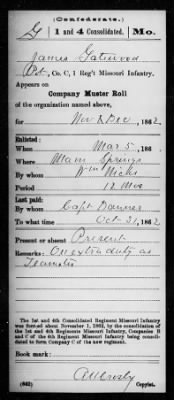 (Confederate.)
G | 1 and 4 Consolidated. | Mo.
James Gatewood
Pvt, Co. C, 1 Reg't Missouri Infantry.
Appears on
Company Muster Roll
of the organization named above,
for Nov & Dec, 1862.
Enlisted:
When Mar 5, 186
Where Springs
By whom Wm Nicks
Period 12 Mos
Last paid:
By whom Capt Danner
To what time Oct 31, 1862.
Present or absent Present
Remarks: On extra duty as
Teamster
The 1st and 4th Consolidated Regiment Missouri Infantry
was formed about November 1, 1862, by the consolidation of
the 1st and 4th Regiments Missouri Infantry, Companies B
and C of the 4th Regiment Missouri Infantry being consolidated
to form Company C of the new regiment.
Book mark:
(642)
Copyist.